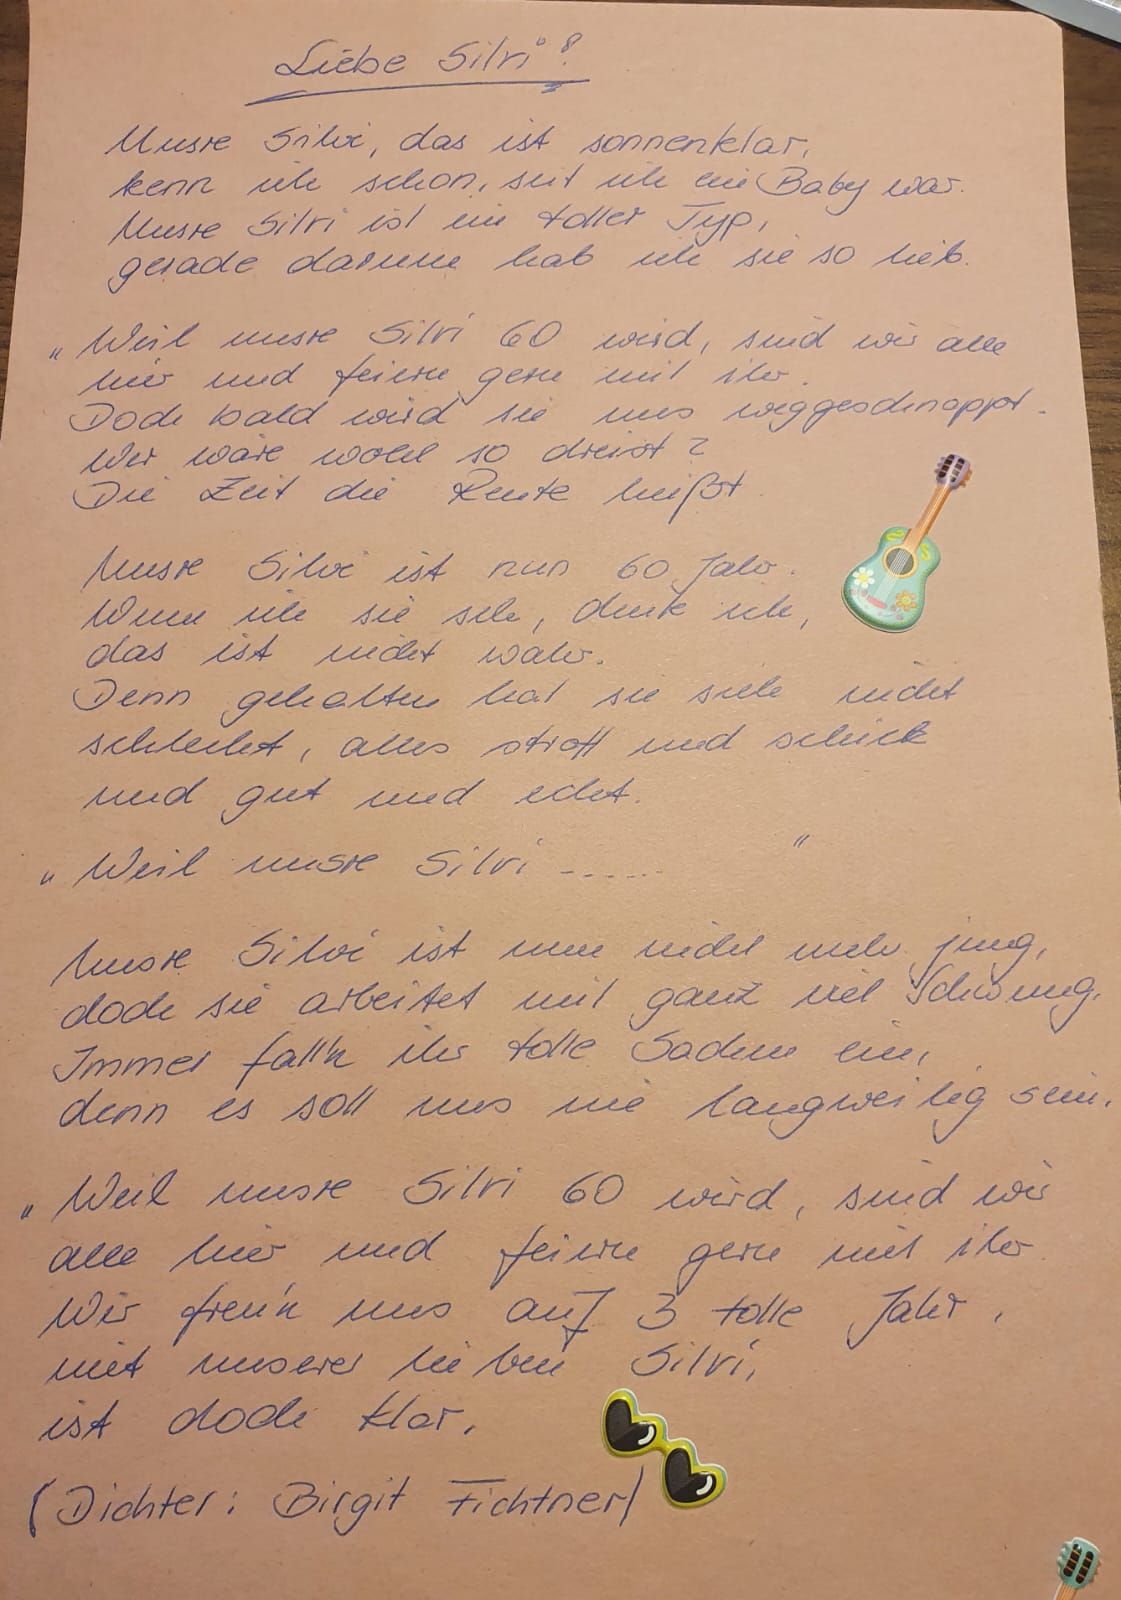 Liebe Silvi!
Unsre Silvi, das ist sonnenklar,
kenn ich schon, seit ich ein Baby war.
Unsre Silvi ist ein toller Typ,
gerade darum hab ich sie so lieb.
„Weil unsre Silvi 60 wird, sind wir alle
hier und feiern gern mit ihr.
Doch bald wird sie uns weggeschnappt.
Wer wäre wohl so dreist?
Die Zeit die Rente heißt.
Unsre Silvi ist nun 60 Jahr.
Wenn ich sie seh, denk ich,
das ist nicht wahr.
Denn gehalten hat sie sich nicht
schlecht, alles straff und schick
und gut und echt.
„Weil unsre Silvi ...... "
Unsre Silvi ist nun nicht mehr jung,
doch sie arbeitet mit ganz viel Schwung.
Immer fall'n ihr tolle Sachen ein,
denn es soll uns nie langweilig sein.
„Weil unsre Silvi 60 wird, sind wir
alle hier und feiern gern mit ihr
Wir freu'n uns auf 3 tolle Jahr,
mit unserer lieben Silvi,
ist doch klar.
(Dichter: Birgit Fichtner)